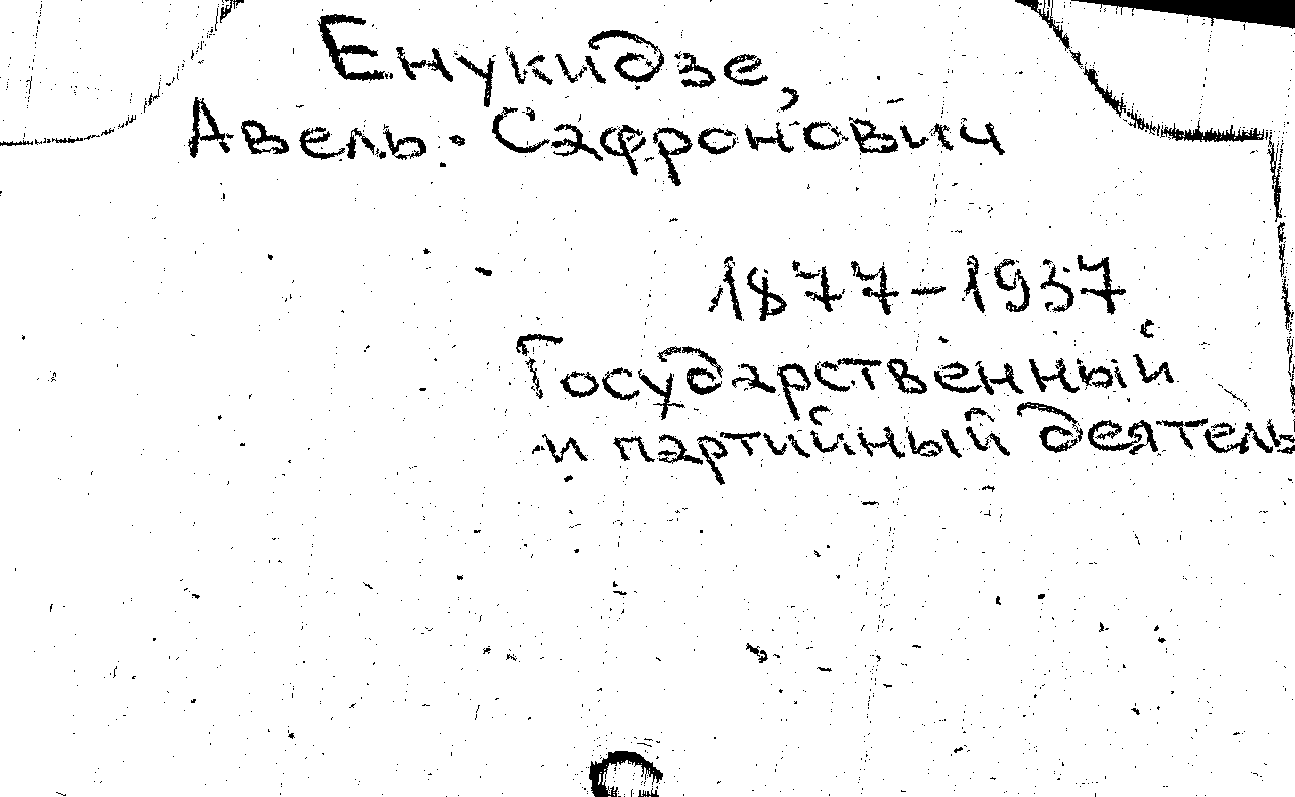 Енукидзе,
Авель Сафронович
1877-1937
Государственный
и партийный деятель